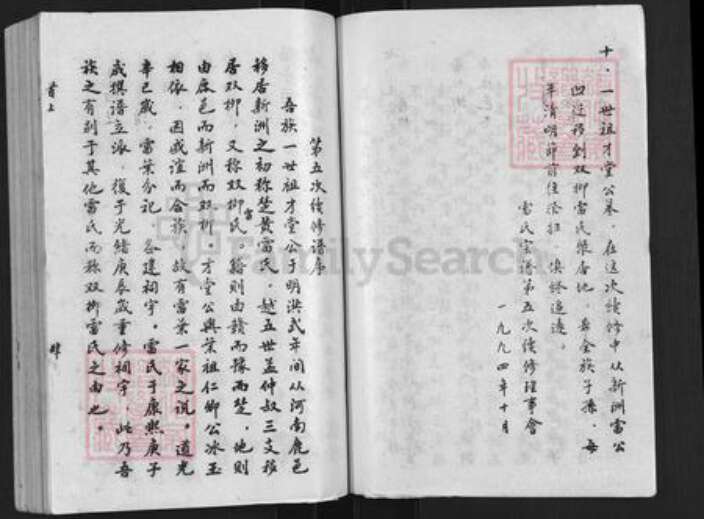 十．一世祖才堂公墓．在这次续修中从新洲雷公
凹迁移到双柳雷氏聚居地．每全族子孫．每
年清明節前往祭扫．慎終追遠。
雷氏宗谱第五次续修理事會
一九九四年十月
第五次续修譜序
吾族一世祖才堂公于明洪武年间从河南鹿邑
移居新洲之初称楚黄雷氏．越五世孟仲叔三支移
居双柳．又称双柳雷氏。籍则由赣而豫而楚．地则
由鹿邑而新洲而双柳．才堂公與葉祖仁卿公冰玉
相依．因戚谊而合族．故有雷葉一家之说．道光
辛巳歲．雷葉分祀．各建祠宇。雷氏于康熙庚子
歲撰譜立派．復于光绪庚辰歲重修祠宇．此乃吾
族之有别于其他雷氏而称双柳雷氏之由也。
首上
肆
FamilySearch